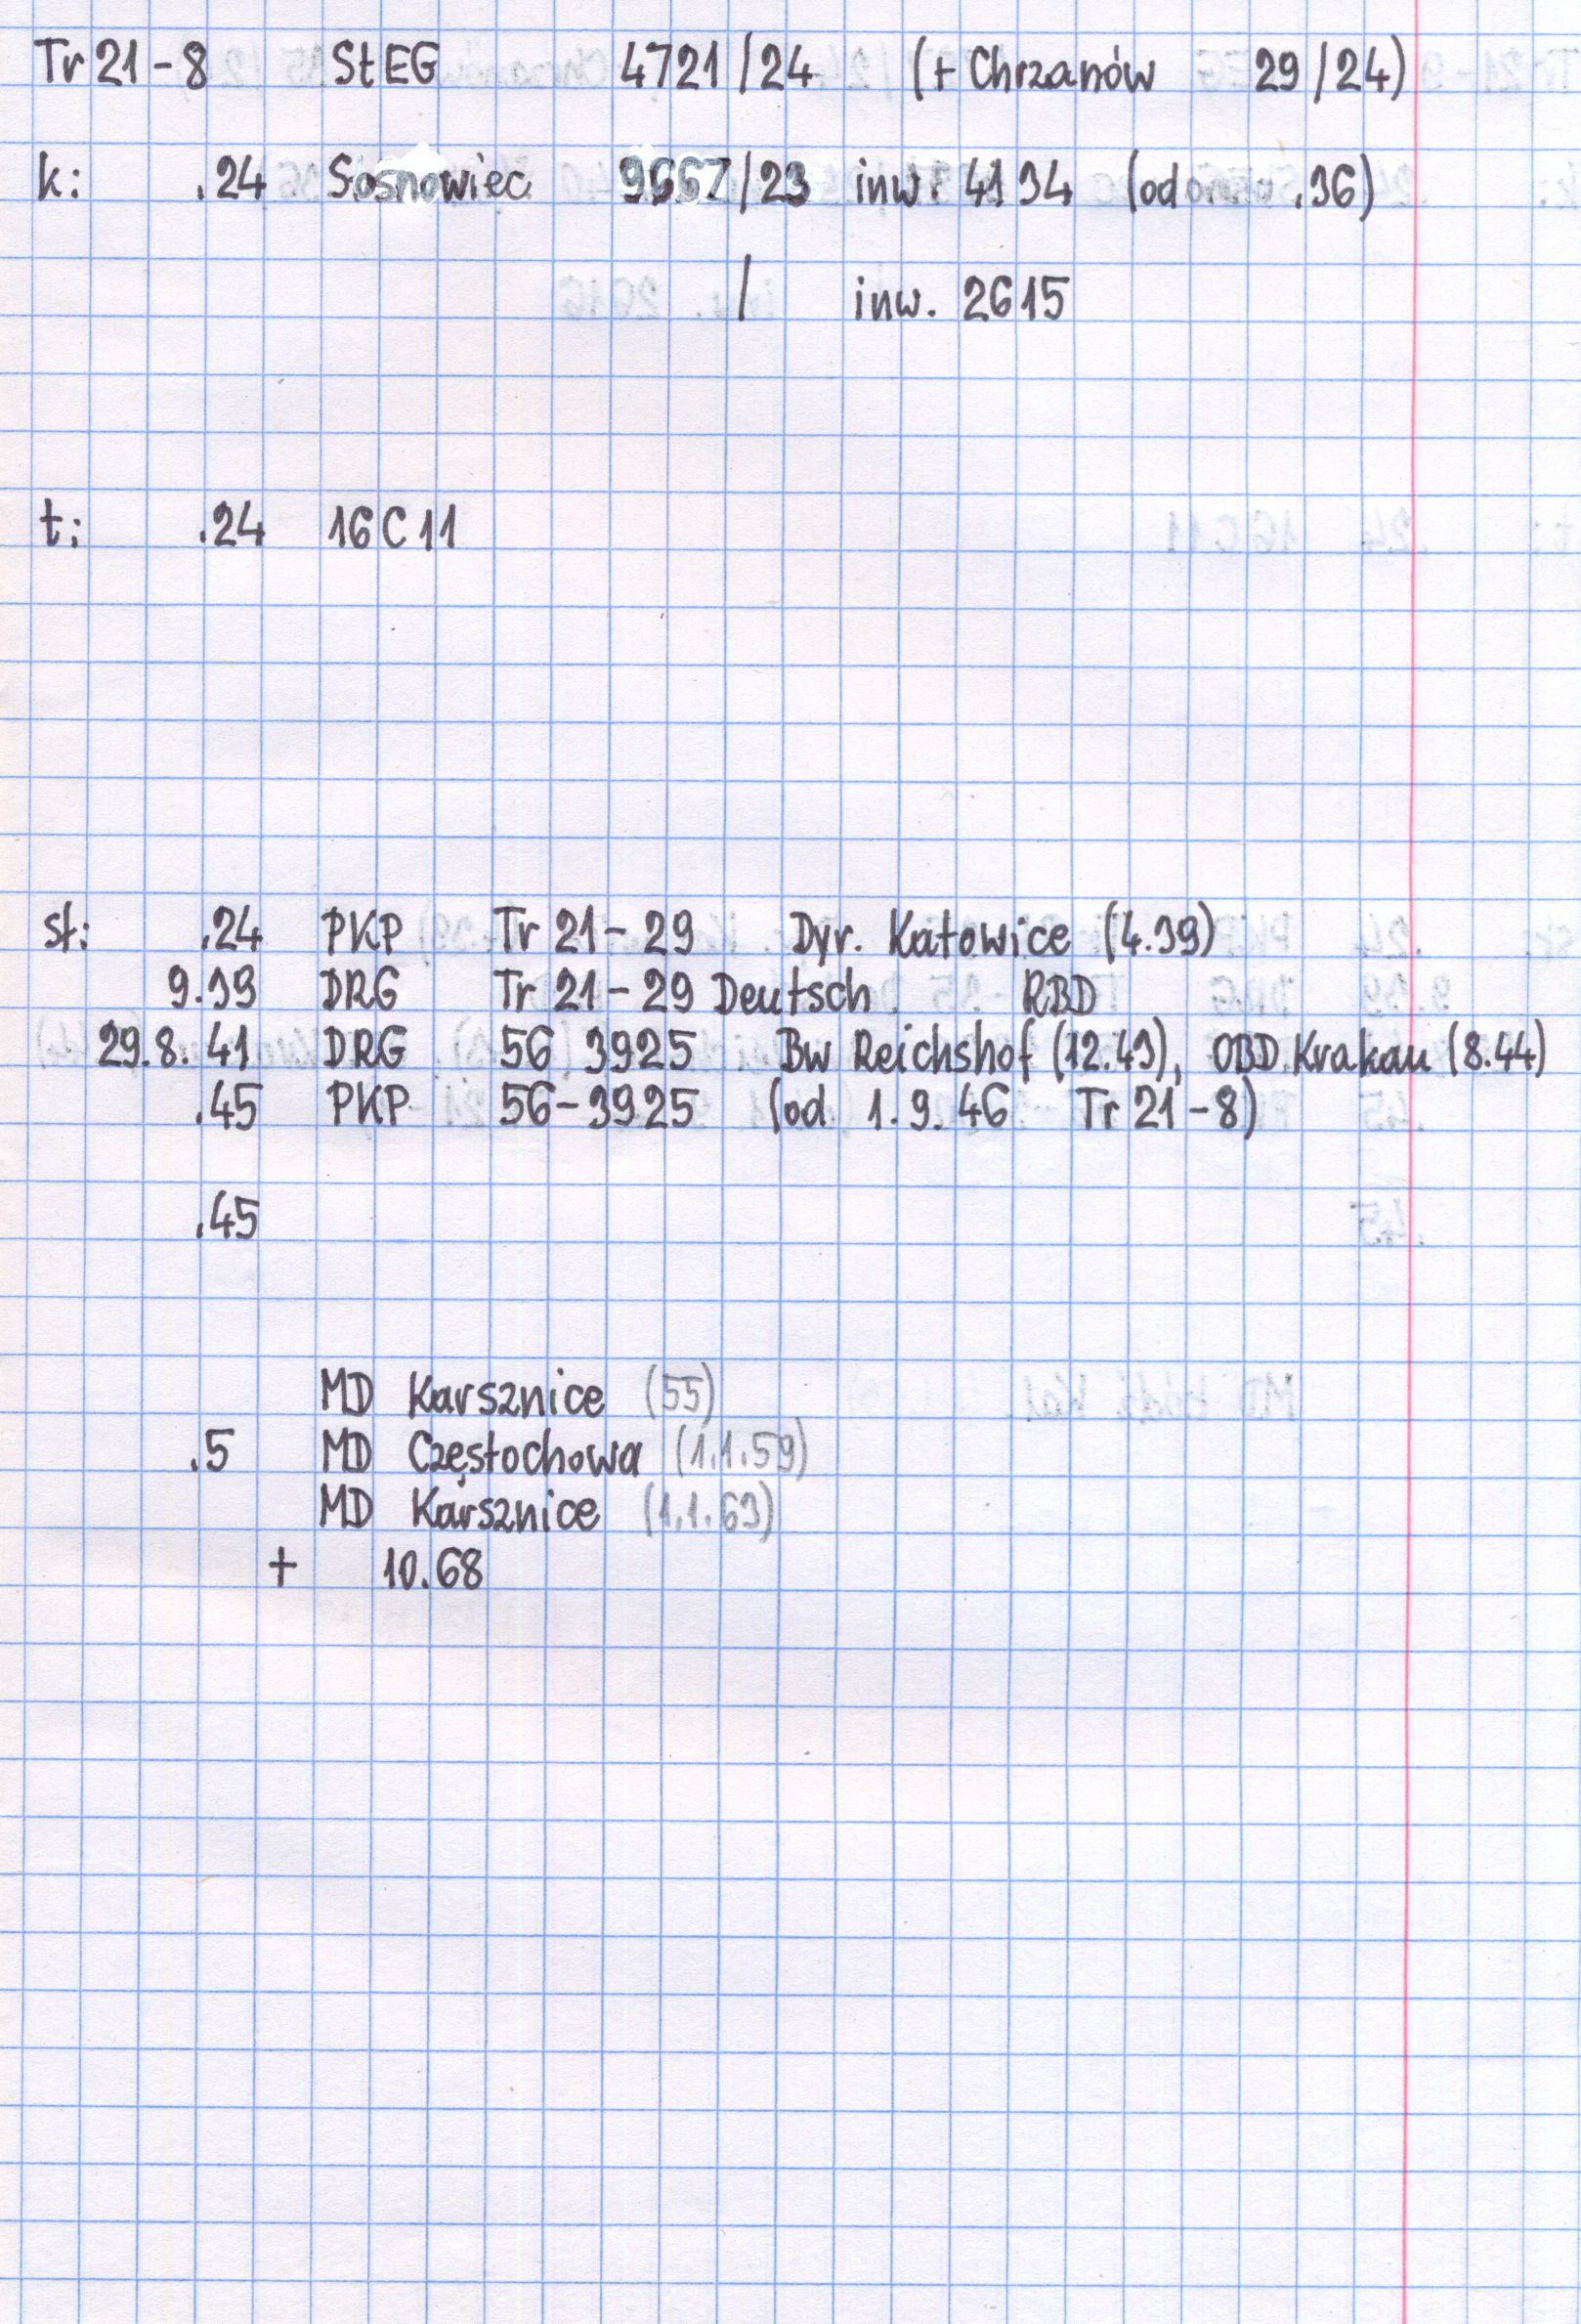 Tr 21-8 StEG 4721/24 (+ Chrzanów 29/24)
k: .24 Sosnowiec 9667/23 inw. 4134 (od .36)
/ inw. 2615
t: .24 16C11
st: .24 PKP Tr 21-29 Dyr. Katowice (4.39)
9.39 DRG Tr 21-29 Deutsch RBD
29.8.41 DRG 56 3925 Bw Reichshof (12.43), OBD Krakau (8.44)
.45 PKP 56-3925 (od 1.9.46 Tr 21-8)
.45
MD Karsznice (55)
.5 MD Częstochowa (1.1.59)
MD Karsznice (1.1.63)
+ 10.68